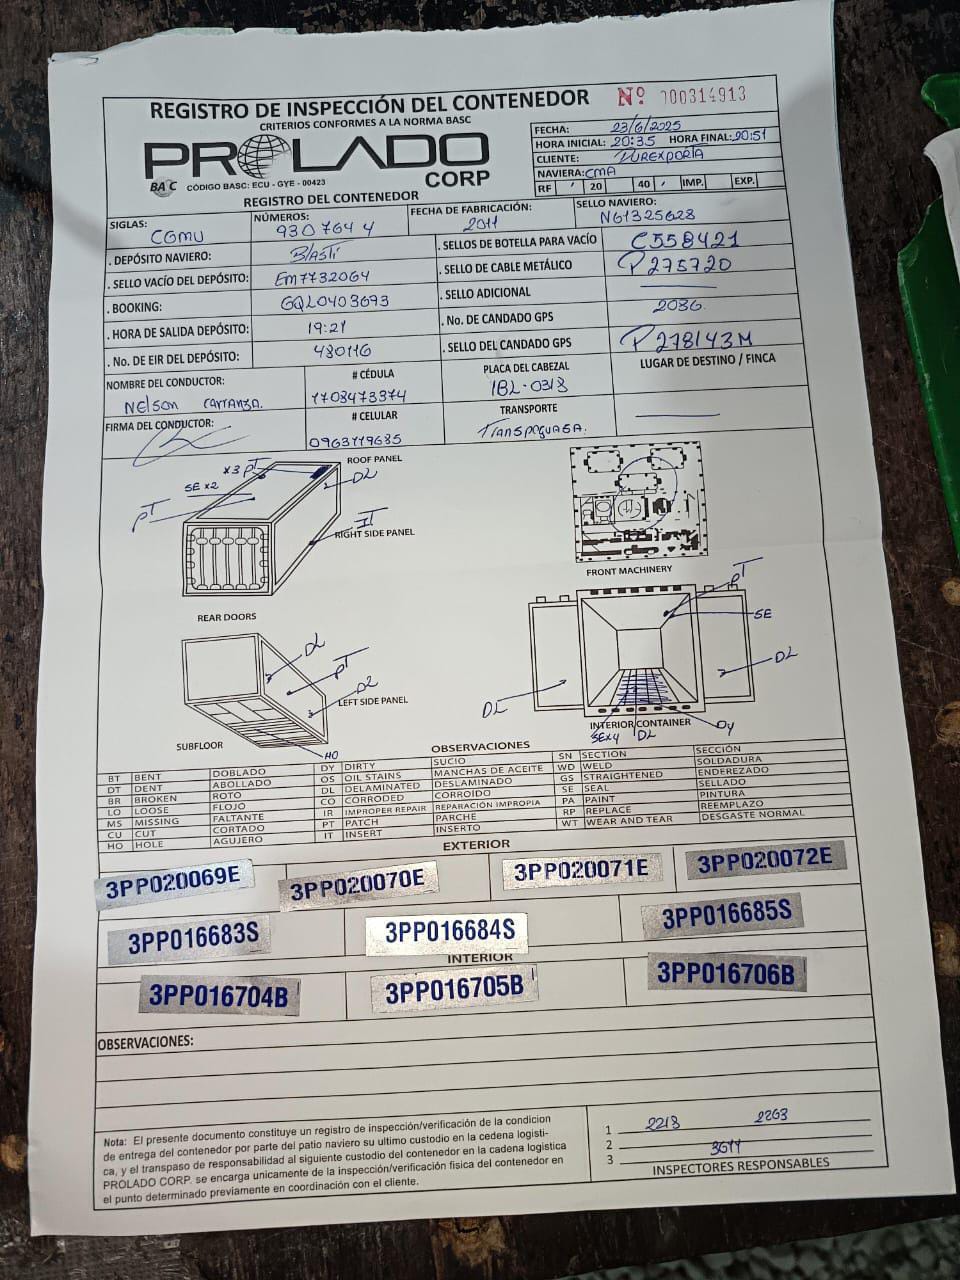 REGISTRO DE INSPECCIÓN DEL CONTENEDOR Nº 000314913
CRITERIOS CONFORMES A LA NORMA BASC
PROLADO CORP
BASC CÓDIGO BASC: ECU - GYE - 00423
FECHA: 23/6/2025
HORA INICIAL: 20:35 HORA FINAL: 20:51
CLIENTE: DUREXPORTA
NAVIERA: CMA
RF / 20 40 / IMP. EXP.
REGISTRO DEL CONTENEDOR
SIGLAS: CGMU
NÚMEROS: 930764 4
FECHA DE FABRICACIÓN: 2011
SELLO NAVIERO: N61325628
. DEPÓSITO NAVIERO: Blasti
. SELLOS DE BOTELLA PARA VACÍO C558421
. SELLO VACÍO DEL DEPÓSITO: EM7732064
. SELLO DE CABLE METÁLICO P275720
. BOOKING: GQL0403693
. SELLO ADICIONAL
. HORA DE SALIDA DEPÓSITO: 19:21
. No. DE CANDADO GPS 2036
. No. DE EIR DEL DEPÓSITO: 480116
. SELLO DEL CANDADO GPS P278143M
NOMBRE DEL CONDUCTOR: Nelson Carranza.
# CÉDULA 1708473374
PLACA DEL CABEZAL IBL-0313
LUGAR DE DESTINO / FINCA
FIRMA DEL CONDUCTOR:
# CELULAR 0963779685
TRANSPORTE Transpoguasa.
ROOF PANEL
x3 PT
SE x2
PT
DL
IT
RIGHT SIDE PANEL
REAR DOORS
FRONT MACHINERY
PT
SE
DL
DL
PT
DL
LEFT SIDE PANEL
DL
SUBFLOOR
HO
INTERIOR CONTAINER
SEx4 DL
DY
OBSERVACIONES
BT BENT DOBLADO DY DIRTY SUCIO SN SECTION SECCIÓN
DT DENT ABOLLADO OS OIL STAINS MANCHAS DE ACEITE WD WELD SOLDADURA
BR BROKEN ROTO DL DELAMINATED DESLAMINADO GS STRAIGHTENED ENDEREZADO
LO LOOSE FLOJO CO CORRODED CORROIDO SE SEAL SELLADO
MS MISSING FALTANTE IR IMPROPER REPAIR REPARACIÓN IMPROPIA PA PAINT PINTURA
CU CUT CORTADO PT PATCH PARCHE RP REPLACE REEMPLAZO
HO HOLE AGUJERO IT INSERT INSERTO WT WEAR AND TEAR DESGASTE NORMAL
EXTERIOR
3PP020069E 3PP020070E 3PP020071E 3PP020072E
3PP016683S 3PP016684S 3PP016685S
INTERIOR
3PP016704B 3PP016705B 3PP016706B
OBSERVACIONES:
Nota: El presente documento constituye un registro de inspección/verificación de la condicion
de entrega del contenedor por parte del patio naviero su ultimo custodio en la cedena logisti-
ca, y el transpaso de responsabilidad al siguiente custodio del contenedor en la cadena logistica
PROLADO CORP. se encarga unicamente de la inspección/verificación fisica del contenedor en
el punto determinado previamente en coordinación con el cliente.
1 2213 2263
2 3611
3
INSPECTORES RESPONSABLES